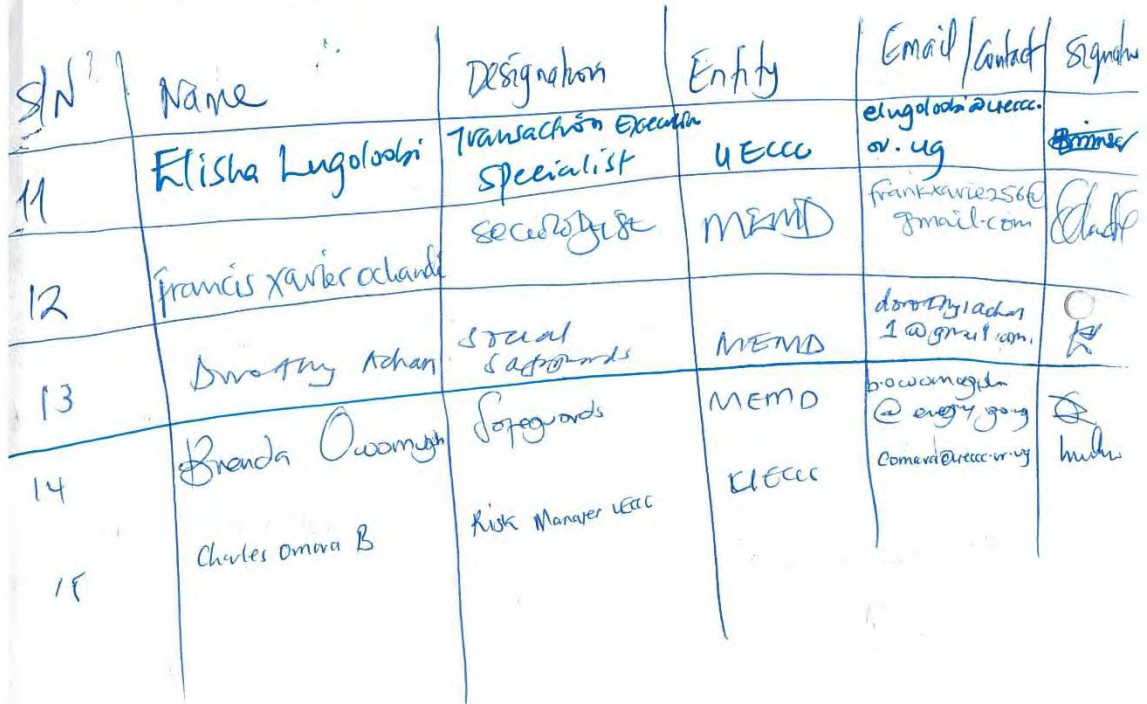 S/N Name Designation Entity Email/Contact Signature
11 Elisha Lugoloobi Transaction Execution Specialist UECCC elugoloobi@ueccc.or.ug
12 Francis Xavier Ochandi MEMD frankxavie256@gmail.com
13 Dorothy Achan Social Safeguards MEMD dorothylachan1@gmail.com.
14 Brenda Safeguards MEMD
15 Charles Omara B Risk Manager UECCC UECCC comara@ueccc.or.ug